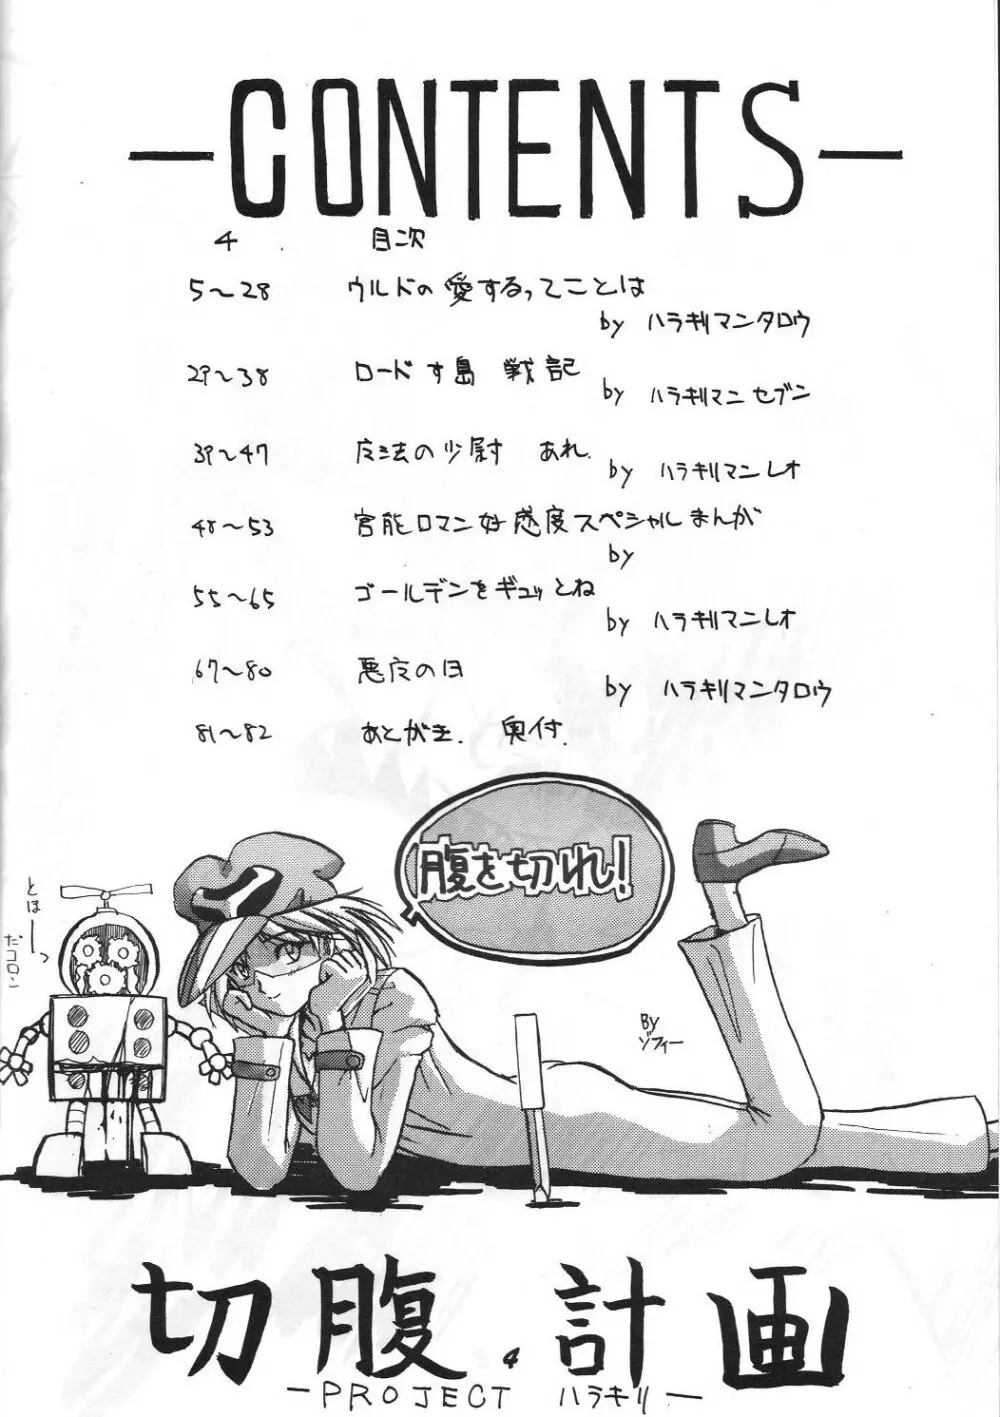 CONTENTS
4 目次
5~28 ウルドの愛するってことは
by ハラキリマンタロウ
29~38 ロードす島 戦記
by ハラキリマン セブン
39~47 广法の少尉 あれ.
by ハラキリマンレオ
48~53 官能ロマン好感度スペシャルまんが
by
55~65 ゴールデンをギュッとね
by ハラキリマンレオ
67~80 悪广の日
by ハラキリマンタロウ
81~82 あとがき. 奥付.
腹を切れ!
とほーっ
だコロン
By
ゾフィー
切腹計画
4
-PROJECT ハラキリ-